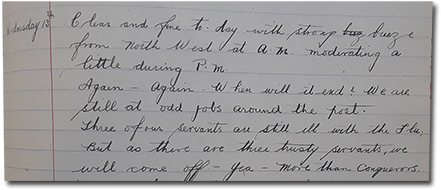 Wednesday 13th
Clear and fine to-day with strong breeze
from North West at A.M. moderating a
little during P.M.
Again - Again. When will it end! We are
still at odd jobs around the post.
Three of our servants are still ill with the Flu,
But as there are three trusty servants, we
will come off - yea - more than conquerors.